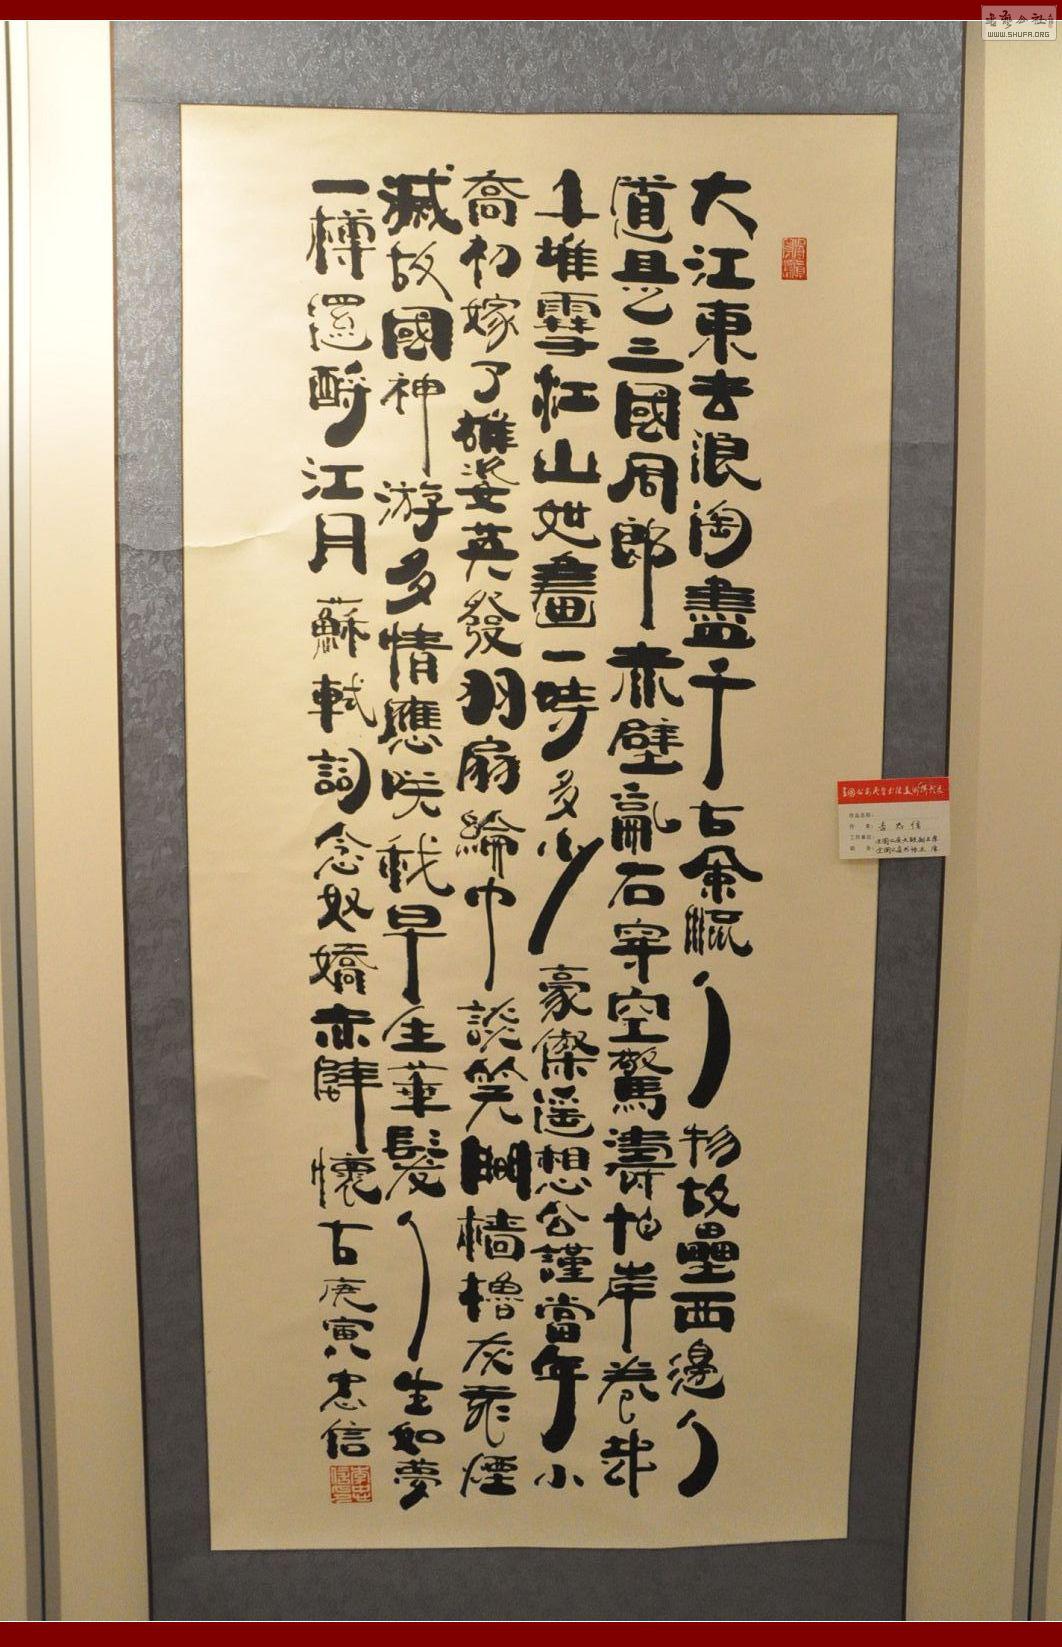 大江東去浪淘盡千古風流人物故壘西邊人
道是三國周郎赤壁亂石穿空驚濤拍岸卷起
千堆雪江山如畫一時多少豪傑遥想公謹當年小
喬初嫁了雄姿英發羽扇綸巾談笑間檣櫓灰飛煙
滅故國神游多情應咲我早生華髮人生如夢
一樽還酹江月 蘇軾詞念奴嬌赤壁懷古庚寅忠信
作品名称：
作 者：
工作单位：
職 务：
WWW.SHUFA.ORG